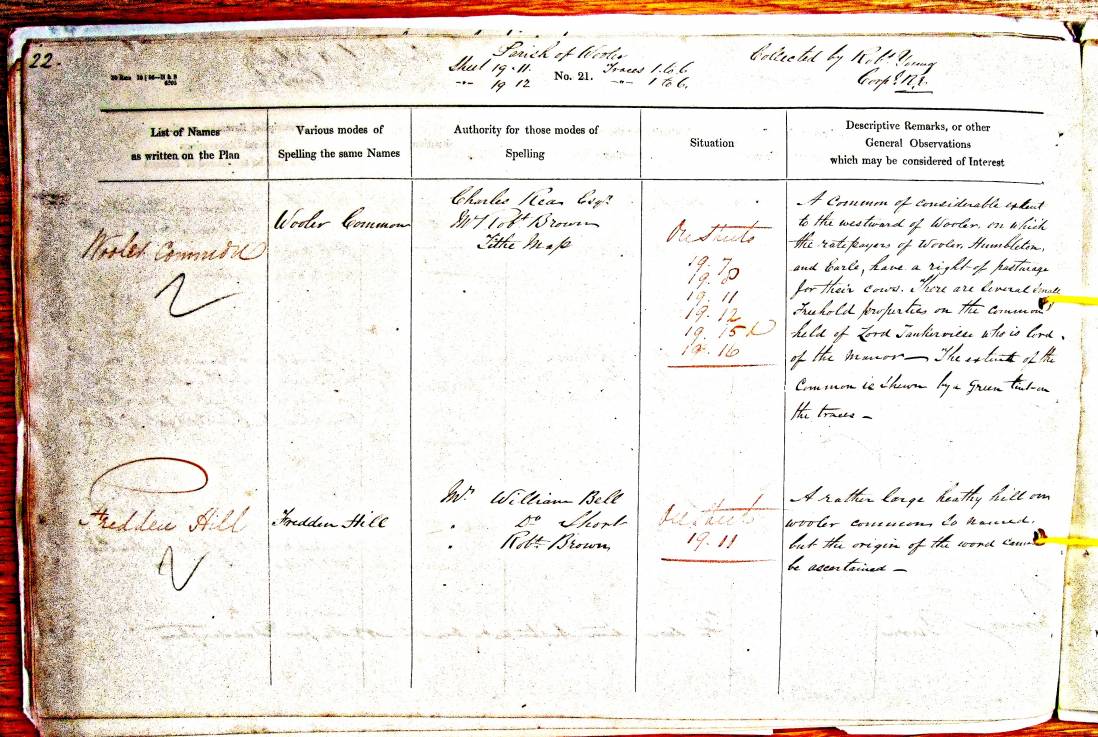 22.
Parish of Wooler
Sheet 19.11. No. 21. Traces 1 to 6.
" 19 12 " 1 to 6.
Collected by Robt Young
Corpl R.E.
List of Names
as written on the Plan
Various modes of
Spelling the same Names
Authority for those modes of
Spelling
Situation
Descriptive Remarks, or other
General Observations
which may be considered of Interest
Wooler Common
Wooler Common
Charles Rea Esqr.
Mr Robt Brown
Tithe Map
On Sheets
19. 7
19. 8
19. 11
19. 12
19. 15
19. 16
A Common of considerable extent
to the westward of Wooler, on which
the ratepayers of Wooler, Humbleton,
and Earle, have a right of pasturage
for their cows. There are several small
Freehold properties on the common
held of Lord Tankerville who is lord
of the Manor — The extent of the
Common is Shewn by a Green tint on
the traces —
Fredden Hill
Fredden Hill
Mr. William Bell
" Do Short
" Robt. Brown
On Sheets
19. 11
A rather large heathy hill on
wooler common so named,
but the origin of the word cannot
be ascertained —